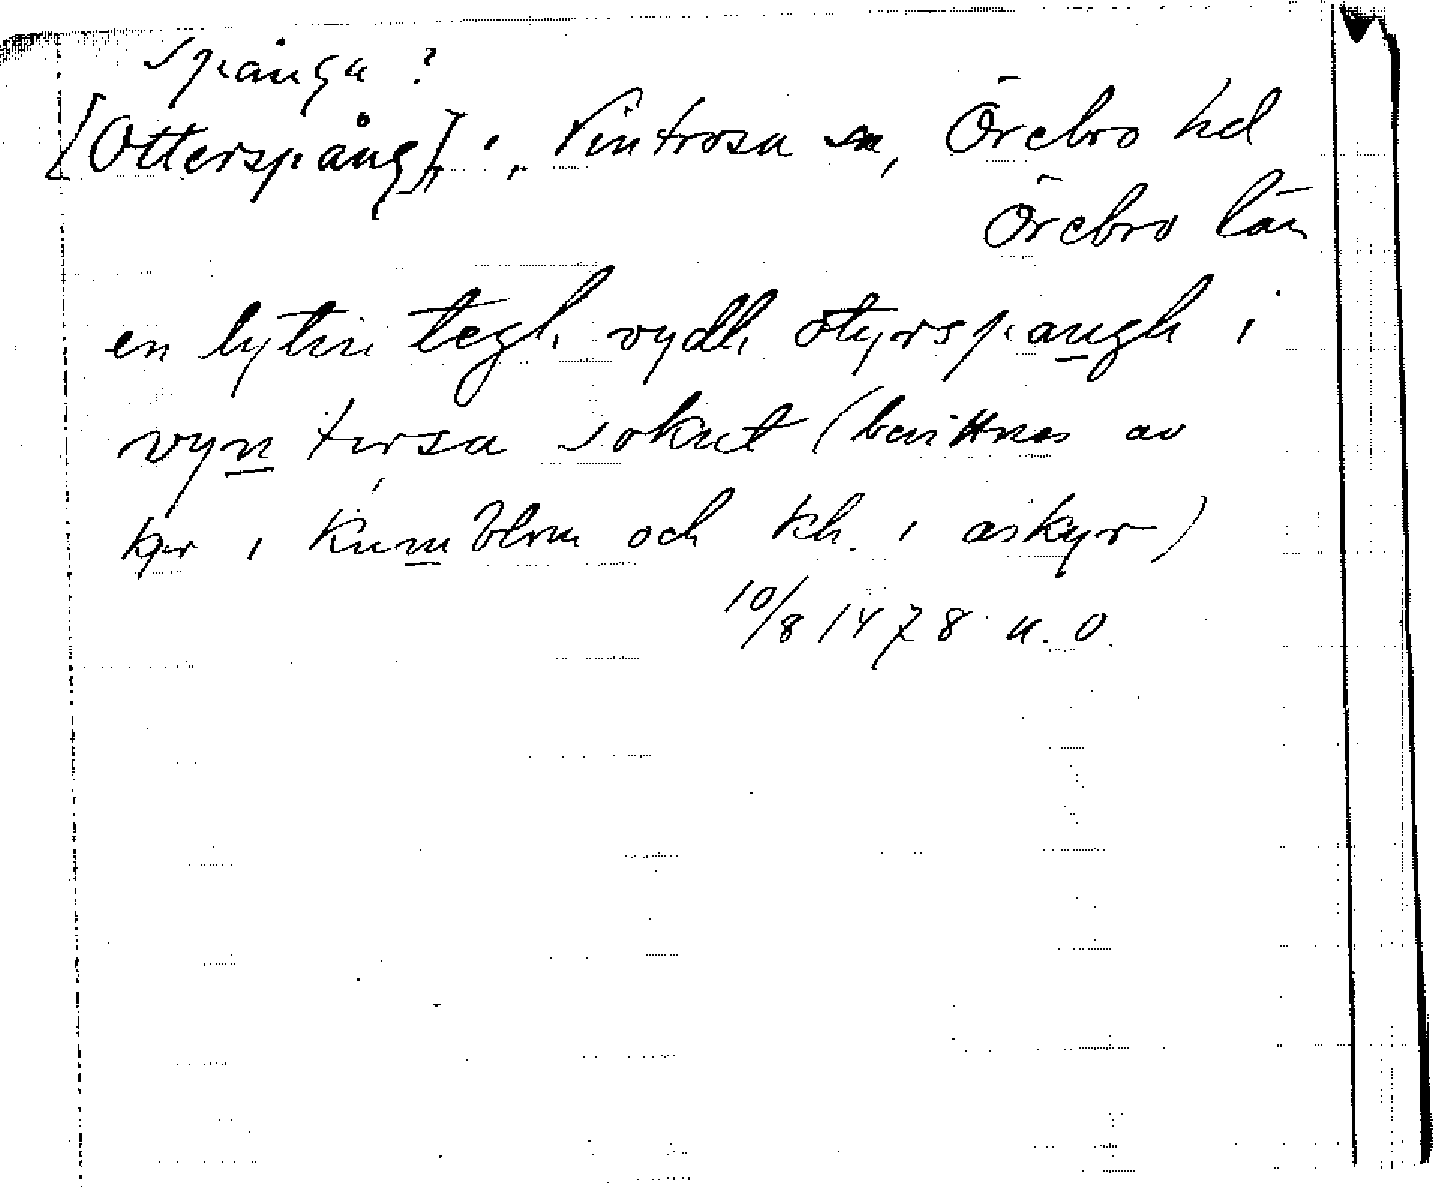 Spånga ?
[Otterspång], Vintrosa sn, Örebro hd
Örebro län
en lytin tegh vydh otyrspangh i
vyntirsa soknet (bevittnas av
kpr i Kumblom och kh. i askyr)
10/8 1478 u. o.